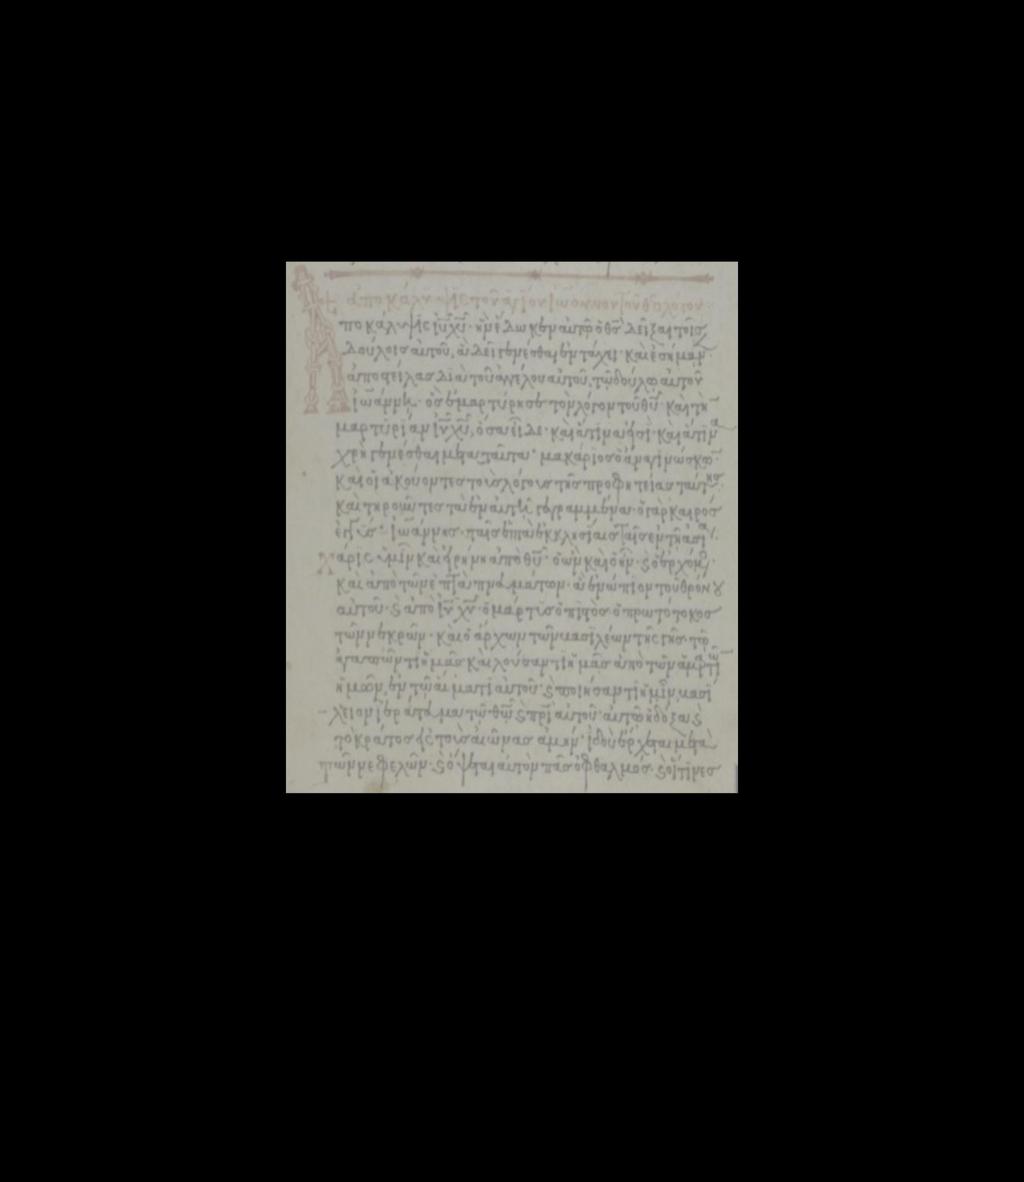 ἀποκάλυψις τοῦ ἁγίου ἰωάννου τοῦ θεολόγου
ποκάλυψις ἰυ χυ· ἣν ἔδωκεν αὐτῷ ὁ θς δεῖξαι τοῖς
δούλοις αὐτοῦ, ἃ δεῖ γενέσθαι ἐν τάχει· καὶ ἐσήμαν
ἀποστείλας διὰ τοῦ ἀγγέλου αὐτοῦ, τῷ δούλῳ αὐτοῦ
ἰωάννῃ· ὃς ἐμαρτύρησε τὸν λόγον τοῦ θυ· καὶ τὴν
μαρτυρίαν ιυ χυ, ὅσα εἶδε· καὶ ἅτινα εἰσὶ· καὶ ἅτινα
χρὴ γενέσθαι μετὰ ταῦτα· μακάριος ὁ ἀναγινώσκων
καὶ οἱ ἀκούοντες τοὺς λόγους τῆς προφητείας ταύτης
καὶ τηροῦντες τὰ ἐν αὐτῇ γεγραμμένα· ὁ γὰρ καιρὸς
ἐγγύς· ἰωάννης· ταῖς ἑπτὰ ἐκκλησίαις ταῖς ἐν τῇ ἀσίᾳ·
χάρις ὑμῖν καὶ εἰρήνη ἀπὸ θυ· ὁ ὢν καὶ ὁ ἦν· ϗ ὁ ἐρχόμενος·
καὶ ἀπὸ τῶν ἑπτὰ πνευμάτων· ἃ ἐνώπιον τοῦ θρόνου
αὐτοῦ· ϗ ἀπὸ ιυ χυ· ὁ μάρτυς ὁ πιστὸς ὁ πρωτότοκος
τῶν νεκρῶν· καὶ ὁ ἄρχων τῶν βασιλέων τῆς γῆς· τῷ
ἀγαπῶντι ἡμᾶς καὶ λούσαντι ἡμᾶς ἀπὸ τῶν ἁμαρτιῶν
ἡμῶν, ἐν τῷ αἵματι αὐτοῦ· ϗ ποιήσαντι ἡμῖν βασι
λείον ἱεράτευμα τῷ θῷ ϗ πρὶ αὐτοῦ· αὐτῷ ἡ δόξα ϗ
τὸ κράτος εἰς τοὺς αἰῶνας ἀμήν· ἰδοὺ ἔρχεται μετὰ
τῶν νεφελῶν· ϗ ὄψεται αὐτὸν πᾶς ὀφθαλμός· ϗ οἵτινες